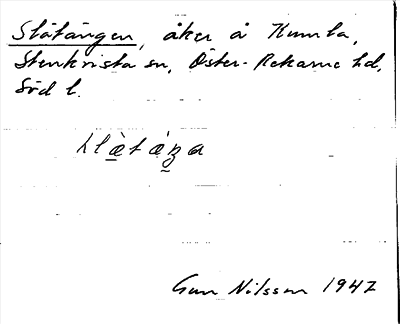 Slåtängen, åker å Kumla,
Stenkvista sn, Öster-Rekarne hd,
Söd l.
Gun Nilsson 1947